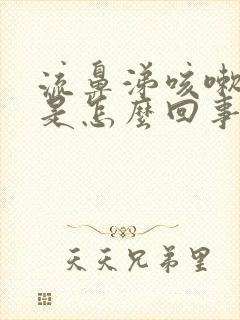 流鼻涕咳嗽
是怎麼回事
天天兄弟里